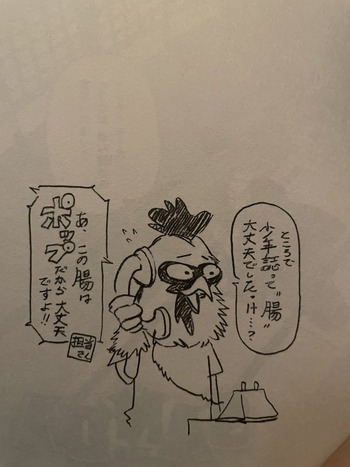 ところで
少年誌って"腸"
大丈夫でしたっけ…?
あ、この腸は
ポップだから大丈夫
ですよ!!
担当
さん